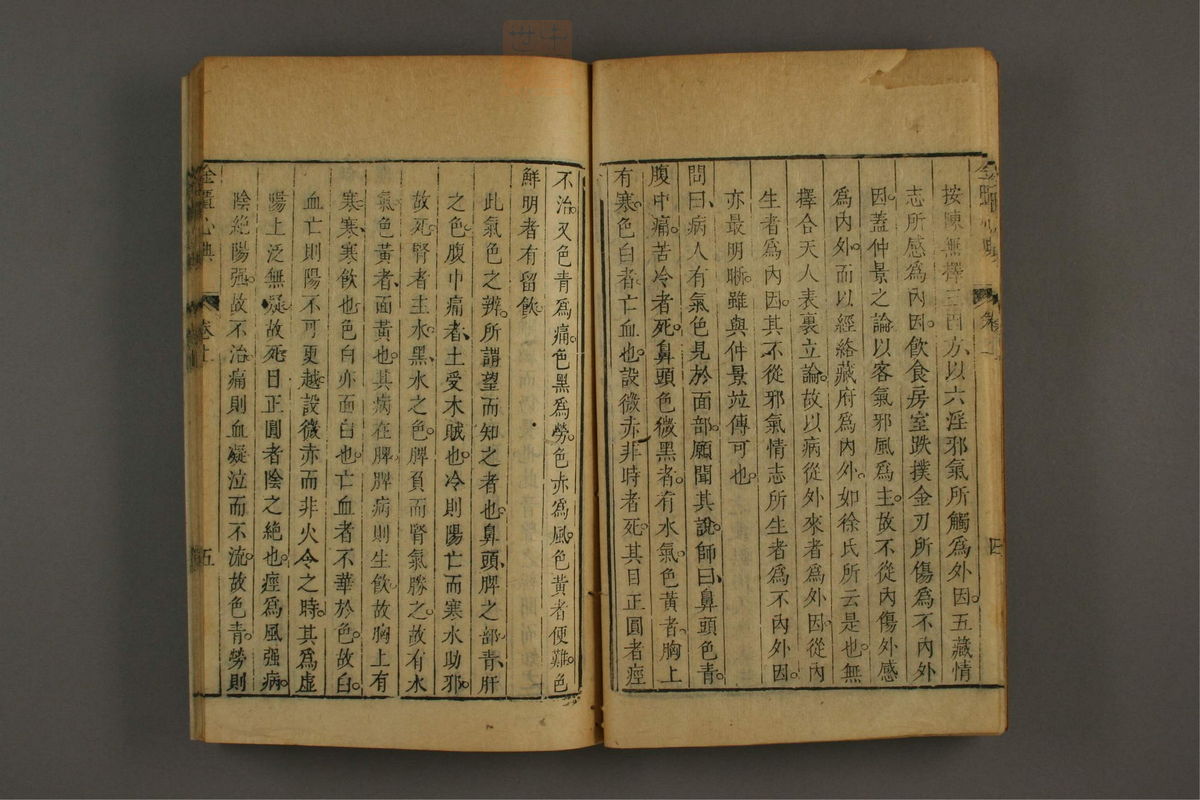 金匱心典 卷上 四
按陳無擇三因方以六淫邪氣所觸爲外因。五藏情
志所感爲內因。飲食房室跌撲金刃所傷爲不內外
因。蓋仲景之論以客氣邪風爲主。故不從內傷外感
爲內外。而以經絡藏府爲內外。如徐氏所云是也。無
擇合天人表裏立論。故以病從外來者爲外因。從內
生者爲內因。其不從邪氣情志所生者爲不內外因。
亦最明晰。雖與仲景竝傳可也。
問曰、病人有氣色見於面部。願聞其說。師曰、鼻頭色青。
腹中痛。苦冷者死。鼻頭色微黑者。有水氣。色黃者。胸上
有寒。色白者。亡血也。設微赤非時者死。其目正圓者痙
不治。又色青爲痛。色黑爲勞。色赤爲風。色黃者便難。色
鮮明者有留飲。
此氣色之辨。所謂望而知之者也。鼻頭、脾之部。青、肝
之色。腹中痛者、土受木賊也。冷則陽亡而寒水助邪。
故死。腎者主水。黑、水之色。脾負而腎氣勝之。故有水
氣。色黃者、面黃也。其病在脾。脾病則生飲。故胸上有
寒。寒、寒飲也。色白亦面白也。亡血者不華於色。故白。
血亡則陽不可更越。設微赤而非火令之時。其爲虛
陽上泛無疑。故死。目正圓者陰之絶也。痙爲風强病。
陰絶陽强。故不治。痛則血凝泣而不流。故色青。勞則
金匱心典 卷上 五